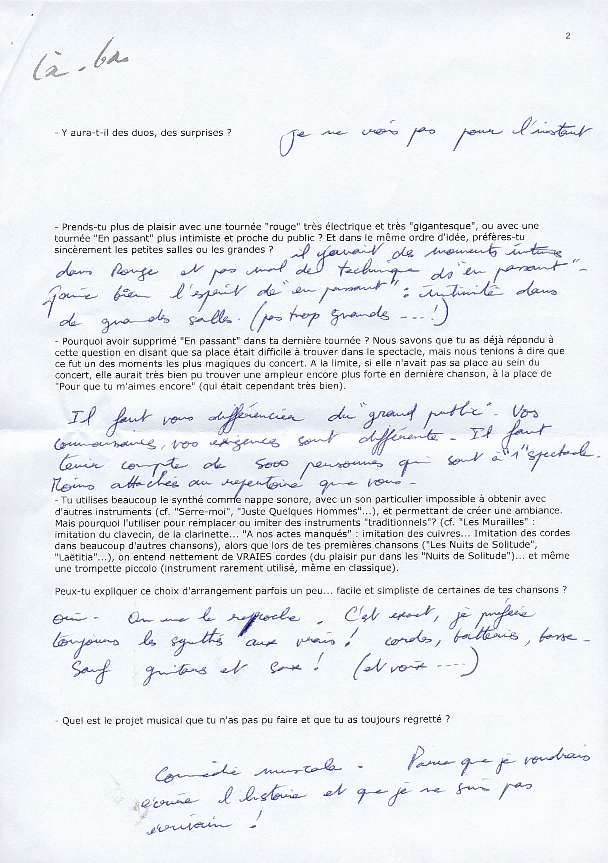 2
là-bas
- Y aura-t-il des duos, des surprises ?
je ne crois pas pour l'instant
- Prends-tu plus de plaisir avec une tournée "rouge" très électrique et très "gigantesque", ou avec une
tournée "En passant" plus intimiste et proche du public ? Et dans le même ordre d'idée, préfères-tu
sincèrement les petites salles ou les grandes ?
il y avait des moments intimes
dans Rouge et pas mal de technique ds "en passant" -
J'aime bien l'esprit de "en passant" : intimité dans
de grandes salles. (pas trop grandes ---- !)
- Pourquoi avoir supprimé "En passant" dans ta dernière tournée ? Nous savons que tu as déjà répondu à
cette question en disant que sa place était difficile à trouver dans le spectacle, mais nous tenions à dire que
ce fut un des moments les plus magiques du concert. A la limite, si elle n'avait pas sa place au sein du
concert, elle aurait très bien pu trouver une ampleur encore plus forte en dernière chanson, à la place de
"Pour que tu m'aimes encore" (qui était cependant très bien).
Il faut vous différencier du "grand public". Vos
connaissances, vos exigences sont différente - Il faut
tenir compte de 5000 personnes qui sont à "1" spectacle.
Moins attachée au répertoire que vous -
- Tu utilises beaucoup le synthé comme nappe sonore, avec un son particulier impossible à obtenir avec
d'autres instruments (cf. "Serre-moi", "Juste Quelques Hommes"...), et permettant de créer une ambiance.
Mais pourquoi l'utiliser pour remplacer ou imiter des instruments "traditionnels"? (cf. "Les Murailles" :
imitation du clavecin, de la clarinette... "A nos actes manqués" : imitation des cuivres... Imitation des cordes
dans beaucoup d'autres chansons), alors que lors de tes premières chansons ("Les Nuits de Solitude",
"Laëtitia"...), on entend nettement de VRAIES cordes (du plaisir pur dans les "Nuits de Solitude")... et même
une trompette piccolo (instrument rarement utilisé, même en classique).
Peux-tu expliquer ce choix d'arrangement parfois un peu... facile et simpliste de certaines de tes chansons ?
oui - On me le reproche. C'est exact, je préfère
toujours les synthés aux vrais ! cordes, batteries, basse -
Sauf guitares et sax ! (et voix ----)
- Quel est le projet musical que tu n'as pas pu faire et que tu as toujours regretté ?
Comédie musicale - Parce que je voudrais
écrire l'histoire et que je ne suis pas
écrivain !